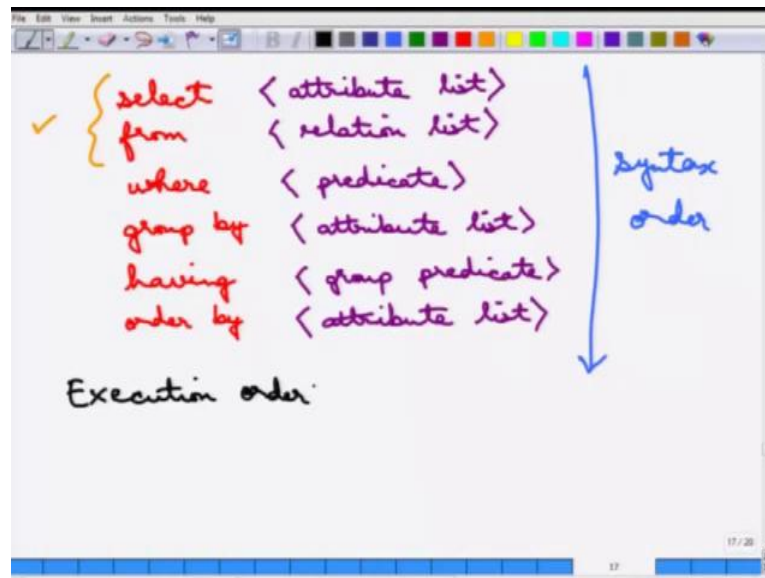 File Edit View Insert Actions Tools Help
select <attribute list>
from <relation list>
where <predicate>
group by <attribute list>
having <group predicate>
order by <attribute list>
syntax
order
Execution order
17/20
17